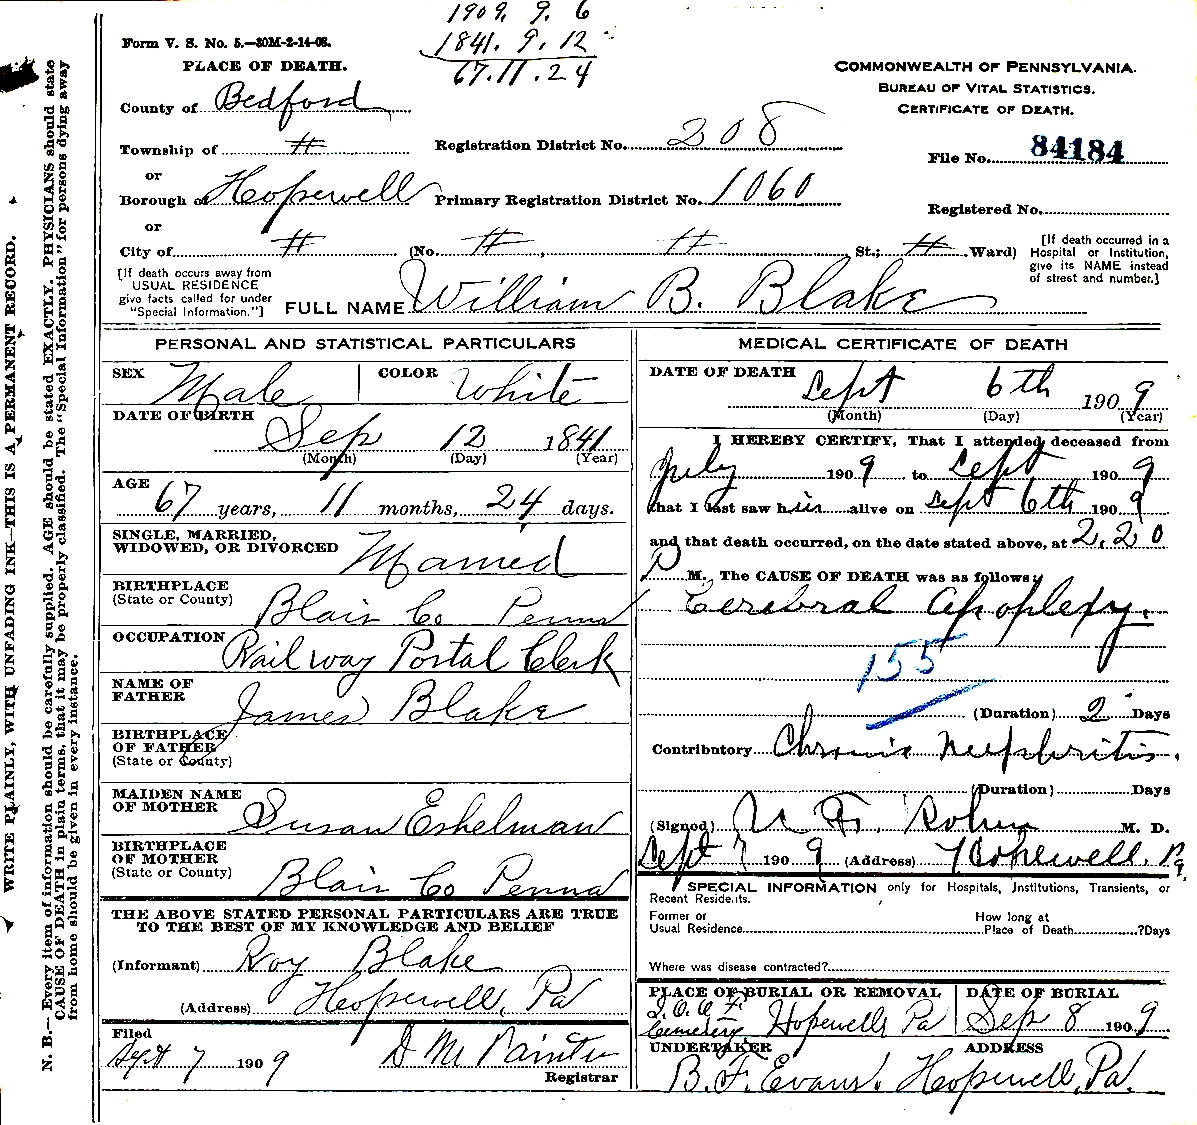 1909. 9. 6
1841. 9. 12
67. 11. 24
Form V. S. No. 5.—30M-2-14-08.
PLACE OF DEATH.
County of Bedford
Township of #
or
Borough of Hopewell
or
City of # (No. #, # St.; # Ward)
Registration District No. 208
Primary Registration District No. 1060
COMMONWEALTH OF PENNSYLVANIA.
BUREAU OF VITAL STATISTICS.
CERTIFICATE OF DEATH.
File No. 84184
Registered No.
[If death occurred in a
Hospital or Institution,
give its NAME instead
of street and number.]
[If death occurs away from
USUAL RESIDENCE
give facts called for under
"Special Information."]
FULL NAME William B. Blake
PERSONAL AND STATISTICAL PARTICULARS
SEX Male COLOR White
DATE OF BIRTH
Sep 12 1841
(Month) (Day) (Year)
AGE
67 years, 11 months, 24 days.
SINGLE, MARRIED,
WIDOWED, OR DIVORCED Married
BIRTHPLACE
(State or County) Blair Co Penna
OCCUPATION Railway Postal Clerk
NAME OF
FATHER James Blake
BIRTHPLACE
OF FATHER
(State or County)
MAIDEN NAME
OF MOTHER Susan Eshelman
BIRTHPLACE
OF MOTHER
(State or County) Blair Co Penna
THE ABOVE STATED PERSONAL PARTICULARS ARE TRUE
TO THE BEST OF MY KNOWLEDGE AND BELIEF
(Informant) Roy Blake
(Address) Hopewell, Pa
Filed
Sept 7 1909 D M Painter
Registrar
MEDICAL CERTIFICATE OF DEATH
DATE OF DEATH
Sept 6th 1909
(Month) (Day) (Year)
I HEREBY CERTIFY, That I attended deceased from
July 1909 to Sept 1909
that I last saw him alive on Sept 6th 1909
and that death occurred, on the date stated above, at 2.20
P M. The CAUSE OF DEATH was as follows:
Cerebral Apoplexy.
155
(Duration) 2 Days
Contributory Chronic Nephritis.
(Duration) Days
(Signed) M. D.
Sept 7 1909 (Address) Hopewell, Pa
SPECIAL INFORMATION only for Hospitals, Institutions, Transients, or
Recent Residents.
Former or
Usual Residence
How long at
Place of Death ?Days
Where was disease contracted?
PLACE OF BURIAL OR REMOVAL
I. O. O. F.
Cemetery Hopewell, Pa
DATE OF BURIAL
Sep 8 1909
UNDERTAKER ADDRESS
B. F. Evans. Hopewell, Pa.
WRITE PLAINLY, WITH UNFADING INK—THIS IS A PERMANENT RECORD.
N. B.—Every item of information should be carefully supplied. AGE should be stated EXACTLY. PHYSICIANS should state
CAUSE OF DEATH in plain terms, that it may be properly classified. The "Special Information" for persons dying away
from home should be given in every instance.